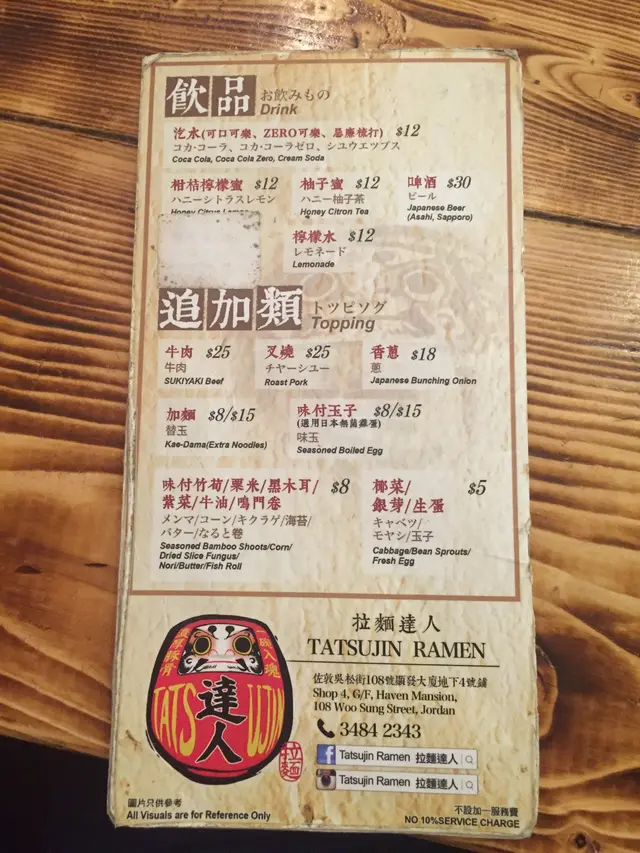 飲品 お飲みもの
Drink
汔水(可口可樂、ZERO可樂、忌廉梳打) $12
コカ·コーラ、コカ·コーラゼロ、シユウエツプス
Coca Cola, Coca Cola Zero, Cream Soda
柑桔檸檬蜜 $12
ハニーシトラスレモン
Honey Citrus Lemon
柚子蜜 $12
ハニー柚子茶
Honey Citron Tea
啤酒 $30
ビール
Japanese Beer
(Asahi, Sapporo)
檸檬水 $12
レモネード
Lemonade
追加類 トツピソグ
Topping
牛肉 $25
牛肉
SUKIYAKI Beef
叉燒 $25
チヤーシユー
Roast Pork
香蔥 $18
蔥
Japanese Bunching Onion
加麵 $8/$15
替玉
Kae-Dama(Extra Noodles)
味付玉子 $8/$15
(選用日本無菌雞蛋)
味玉
Seasoned Boiled Egg
味付竹筍/粟米/黑木耳/ $8
紫菜/牛油/鳴門卷
メンマ/コーン/キクラゲ/海苔/
バター/なると巻
Seasoned Bamboo Shoots/Corn/
Dried Slice Fungus/
Nori/Butter/Fish Roll
椰菜/ $5
銀芽/生蛋
キャベツ/
モヤシ/玉子
Cabbage/Bean Sprouts/
Fresh Egg
一碗入魂
TATSUJIN
達人
拉麵
拉麵達人
TATSUJIN RAMEN
佐敦吳松街108號顯發大廈地下4號鋪
Shop 4, G/F, Haven Mansion,
108 Woo Sung Street, Jordan
3484 2343
f Tatsujin Ramen 拉麵達人
Tatsujin Ramen 拉麵達人
圖片只供參考
All Visuals are for Reference Only
不設加一服務費
NO 10%SERVICE CHARGE